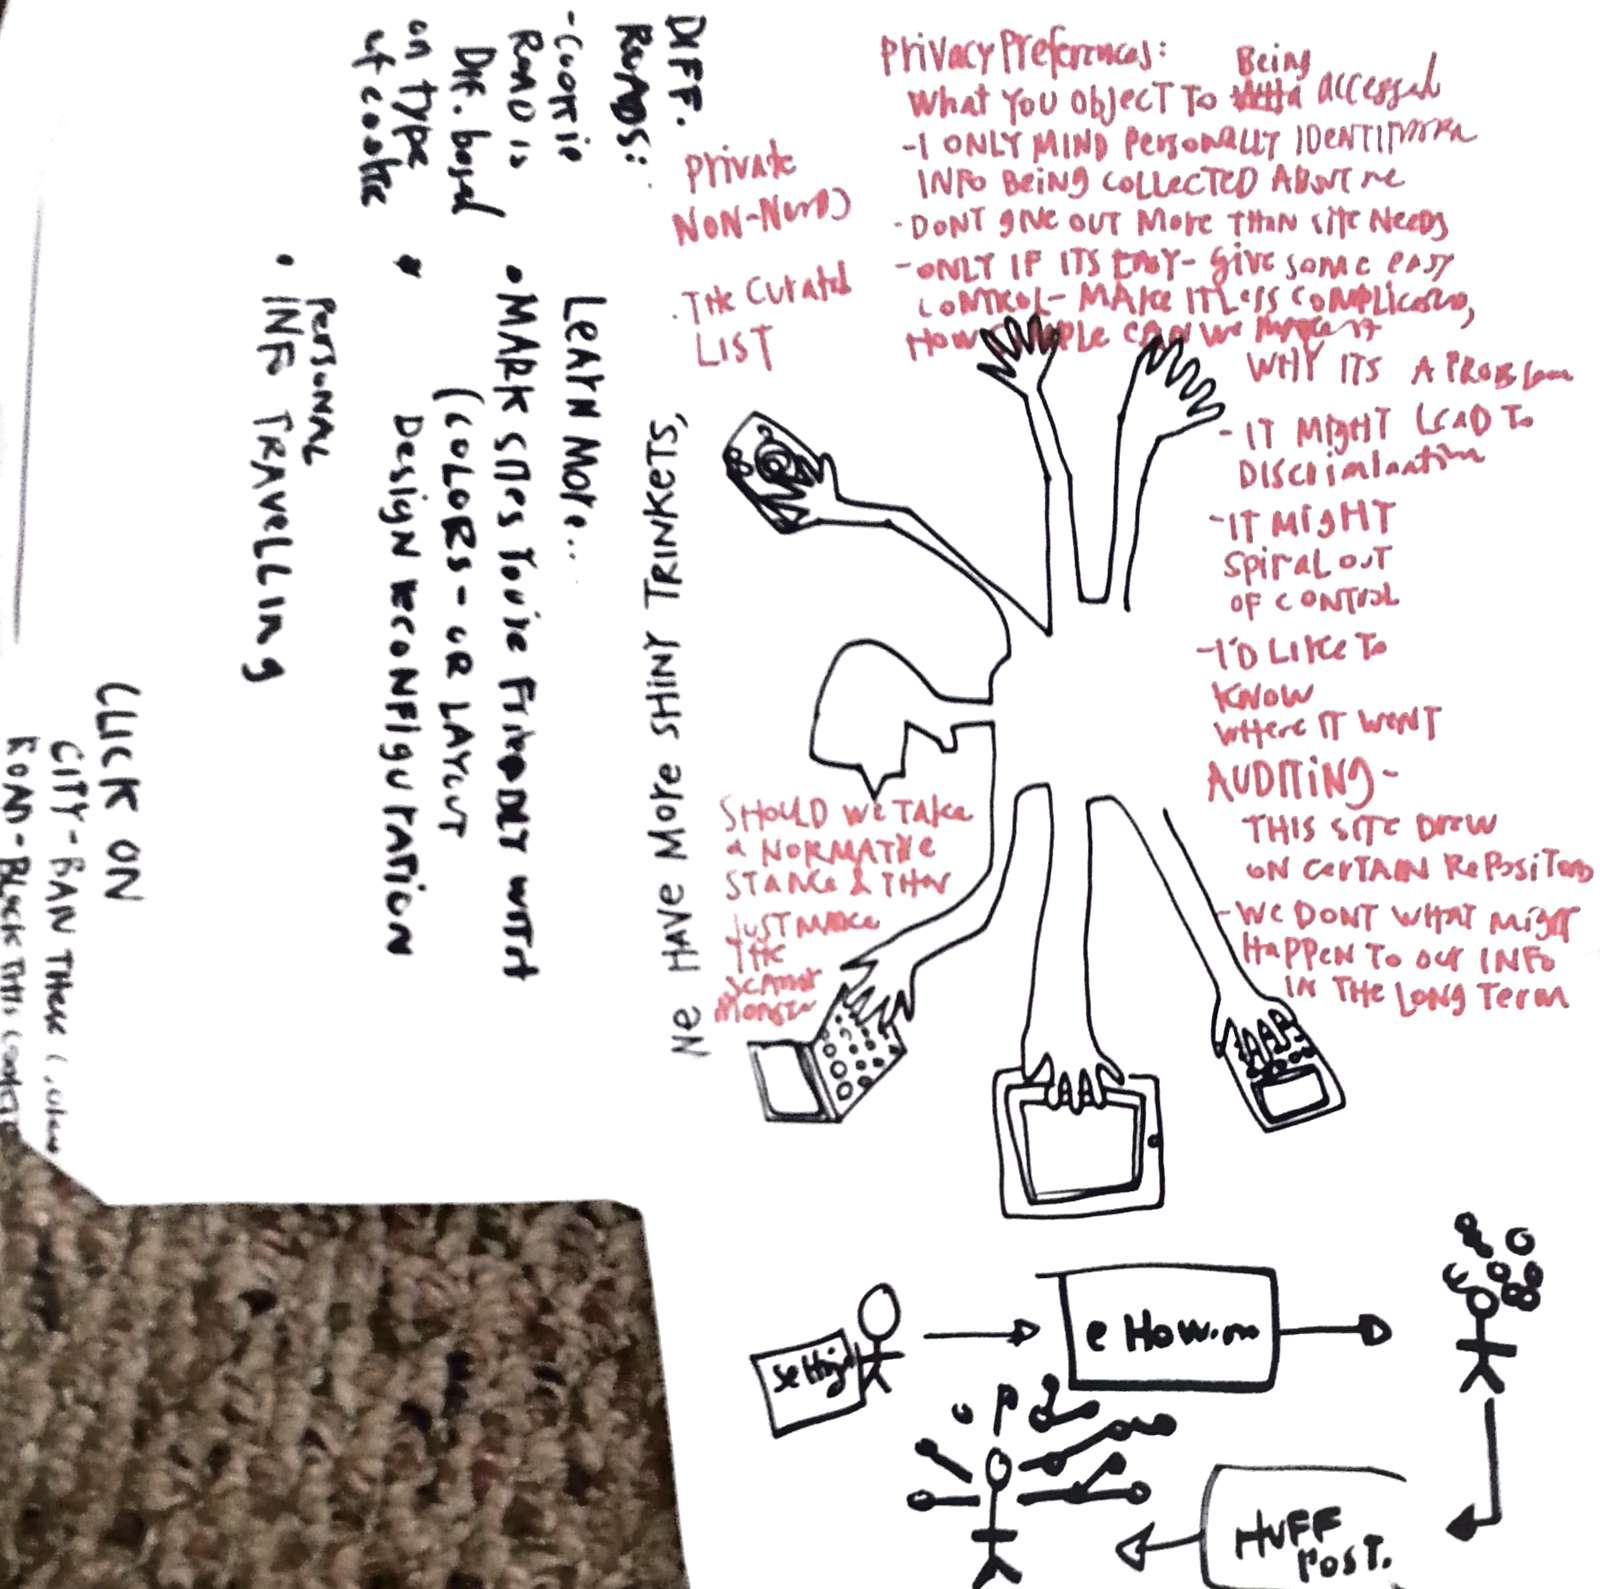 Privacy Preferences:
What You Object To Being accessed
-I ONLY MIND Personally IDENTIFIABLE
INFO BEING COLLECTED ABOUT ME
-DONT GIVE OUT MORE THAN SITE NEEDS
-ONLY IF ITS EASY- GIVE SOME EASY
CONTROL- MAKE IT LESS COMPLICATED,
HOW SIMPLE CAN WE MAKE IT
WHY ITS A PROBLEM
-IT MIGHT LEAD TO
DISCRIMINATION
-IT MIGHT
SPIRAL OUT
OF CONTROL
-I'D LIKE TO
KNOW
WHERE IT WENT
AUDITING-
THIS SITE DREW
ON CERTAIN REPOSITORIES
-WE DONT WHAT MIGHT
HAPPEN TO OUR INFO
IN THE LONG TERM
Private
NON-NERDS
.THE CURATED
LIST
SHOULD WE TAKE
A NORMATIVE
STANCE & THEN
JUST MAKE
THE
MONSTER
DIFF.
ROADS:
-COOKIE
ROAD IS
DIF. based
on type
of cookie
WE HAVE MORE SHINY TRINKETS,
LEARN MORE...
• MARK SITES YOU'RE FRIENDLY WITH
(COLORS- OR LAYOUT
Design RECONFIGURATION
PERSONAL
• INFO TRAVELLING
CLICK ON
CITY-BAN THESE
ROAD-BLOCK THIS COOKIE
Settings
eHow.m
HUFF
POST.